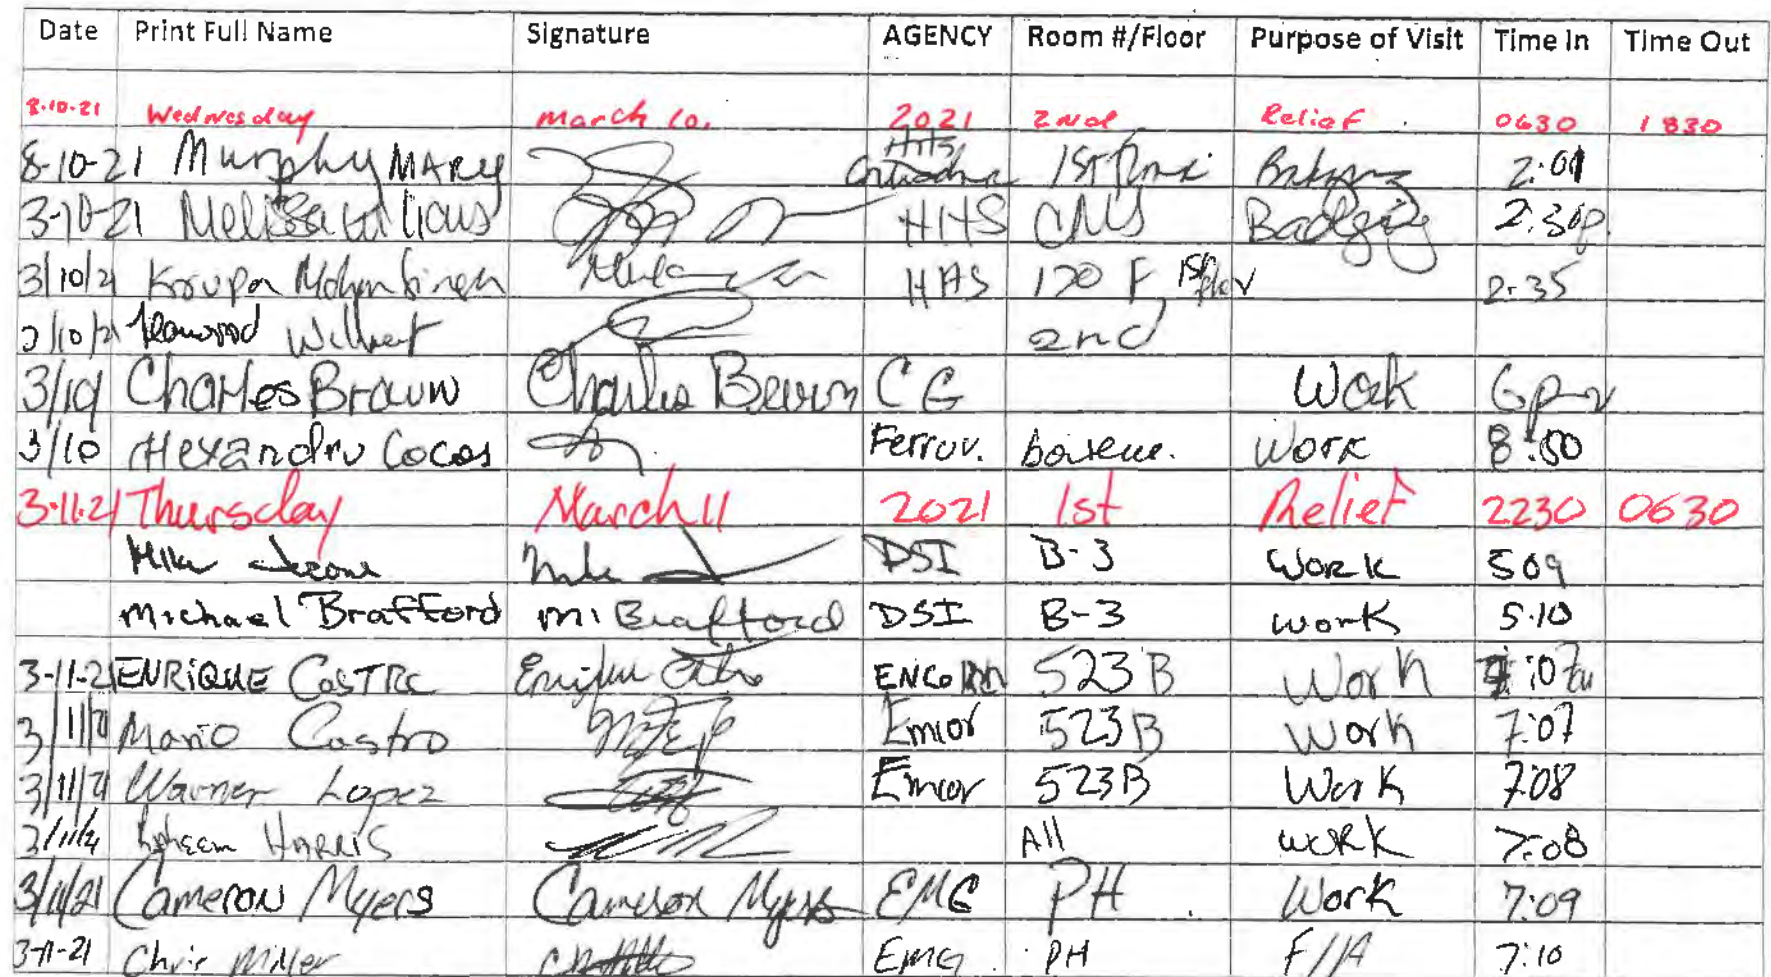 Date Print Full Name Signature AGENCY Room #/Floor Purpose of Visit Time In Time Out
8-10-21 Wednesday March 10, 2021 2nd Relief 0630 1830
8-10-21 Murphy MARY HHS 1st Floor 2:01
3-10-21 Melissa HHS CMS Badging 2:30p
3/10/21 Krupa HHS 120 F, 1st floor 2:35
3/10/21 2nd
3/10 Charles Brown Charles Brown CG Work 6pm
3/10 Alexandru Cocos Ferrov. Work 8:50
3-11-21 Thursday March 11 2021 1st Relief 2230 0630
Mike DSI B-3 Work 509
Michael Brafford M Brafford DSI B-3 work 5:10
3-11-21 ENRIQUE CASTRO 523B Work
3/11/21 Mario Castro Emcor 523B Work 7:07
3/11/21 Warner Lopez Emcor 523B Work 7:08
3/11/21 HARRIS All WORK 7:08
3/11/21 Cameron Myers Cameron Myers EMG PH Work 7:09
3-11-21 Chris Miller EMG PH F/A 7:10